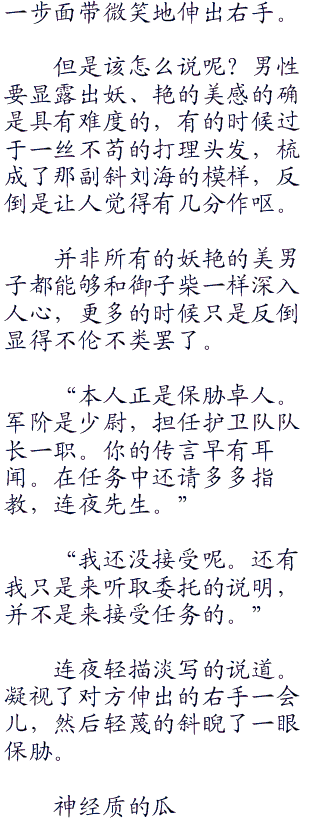 一步面带微笑地伸出右手。
但是该怎么说呢？男性
要显露出妖、艳的美感的确
是具有难度的，有的时候过
于一丝不苟的打理头发，梳
成了那副斜刘海的模样，反
倒是让人觉得有几分作呕。
并非所有的妖艳的美男
子都能够和御子柴一样深入
人心，更多的时候只是反倒
显得不伦不类罢了。
“本人正是保胁卓人。
军阶是少尉，担任护卫队队
长一职。你的传言早有耳
闻。在任务中还请多多指
教，连夜先生。”
“我还没接受呢。还有
我只是来听取委托的说明，
并不是来接受任务的。”
连夜轻描淡写的说道。
凝视了对方伸出的右手一会
儿，然后轻蔑的斜睨了一眼
保胁。
神经质的瓜